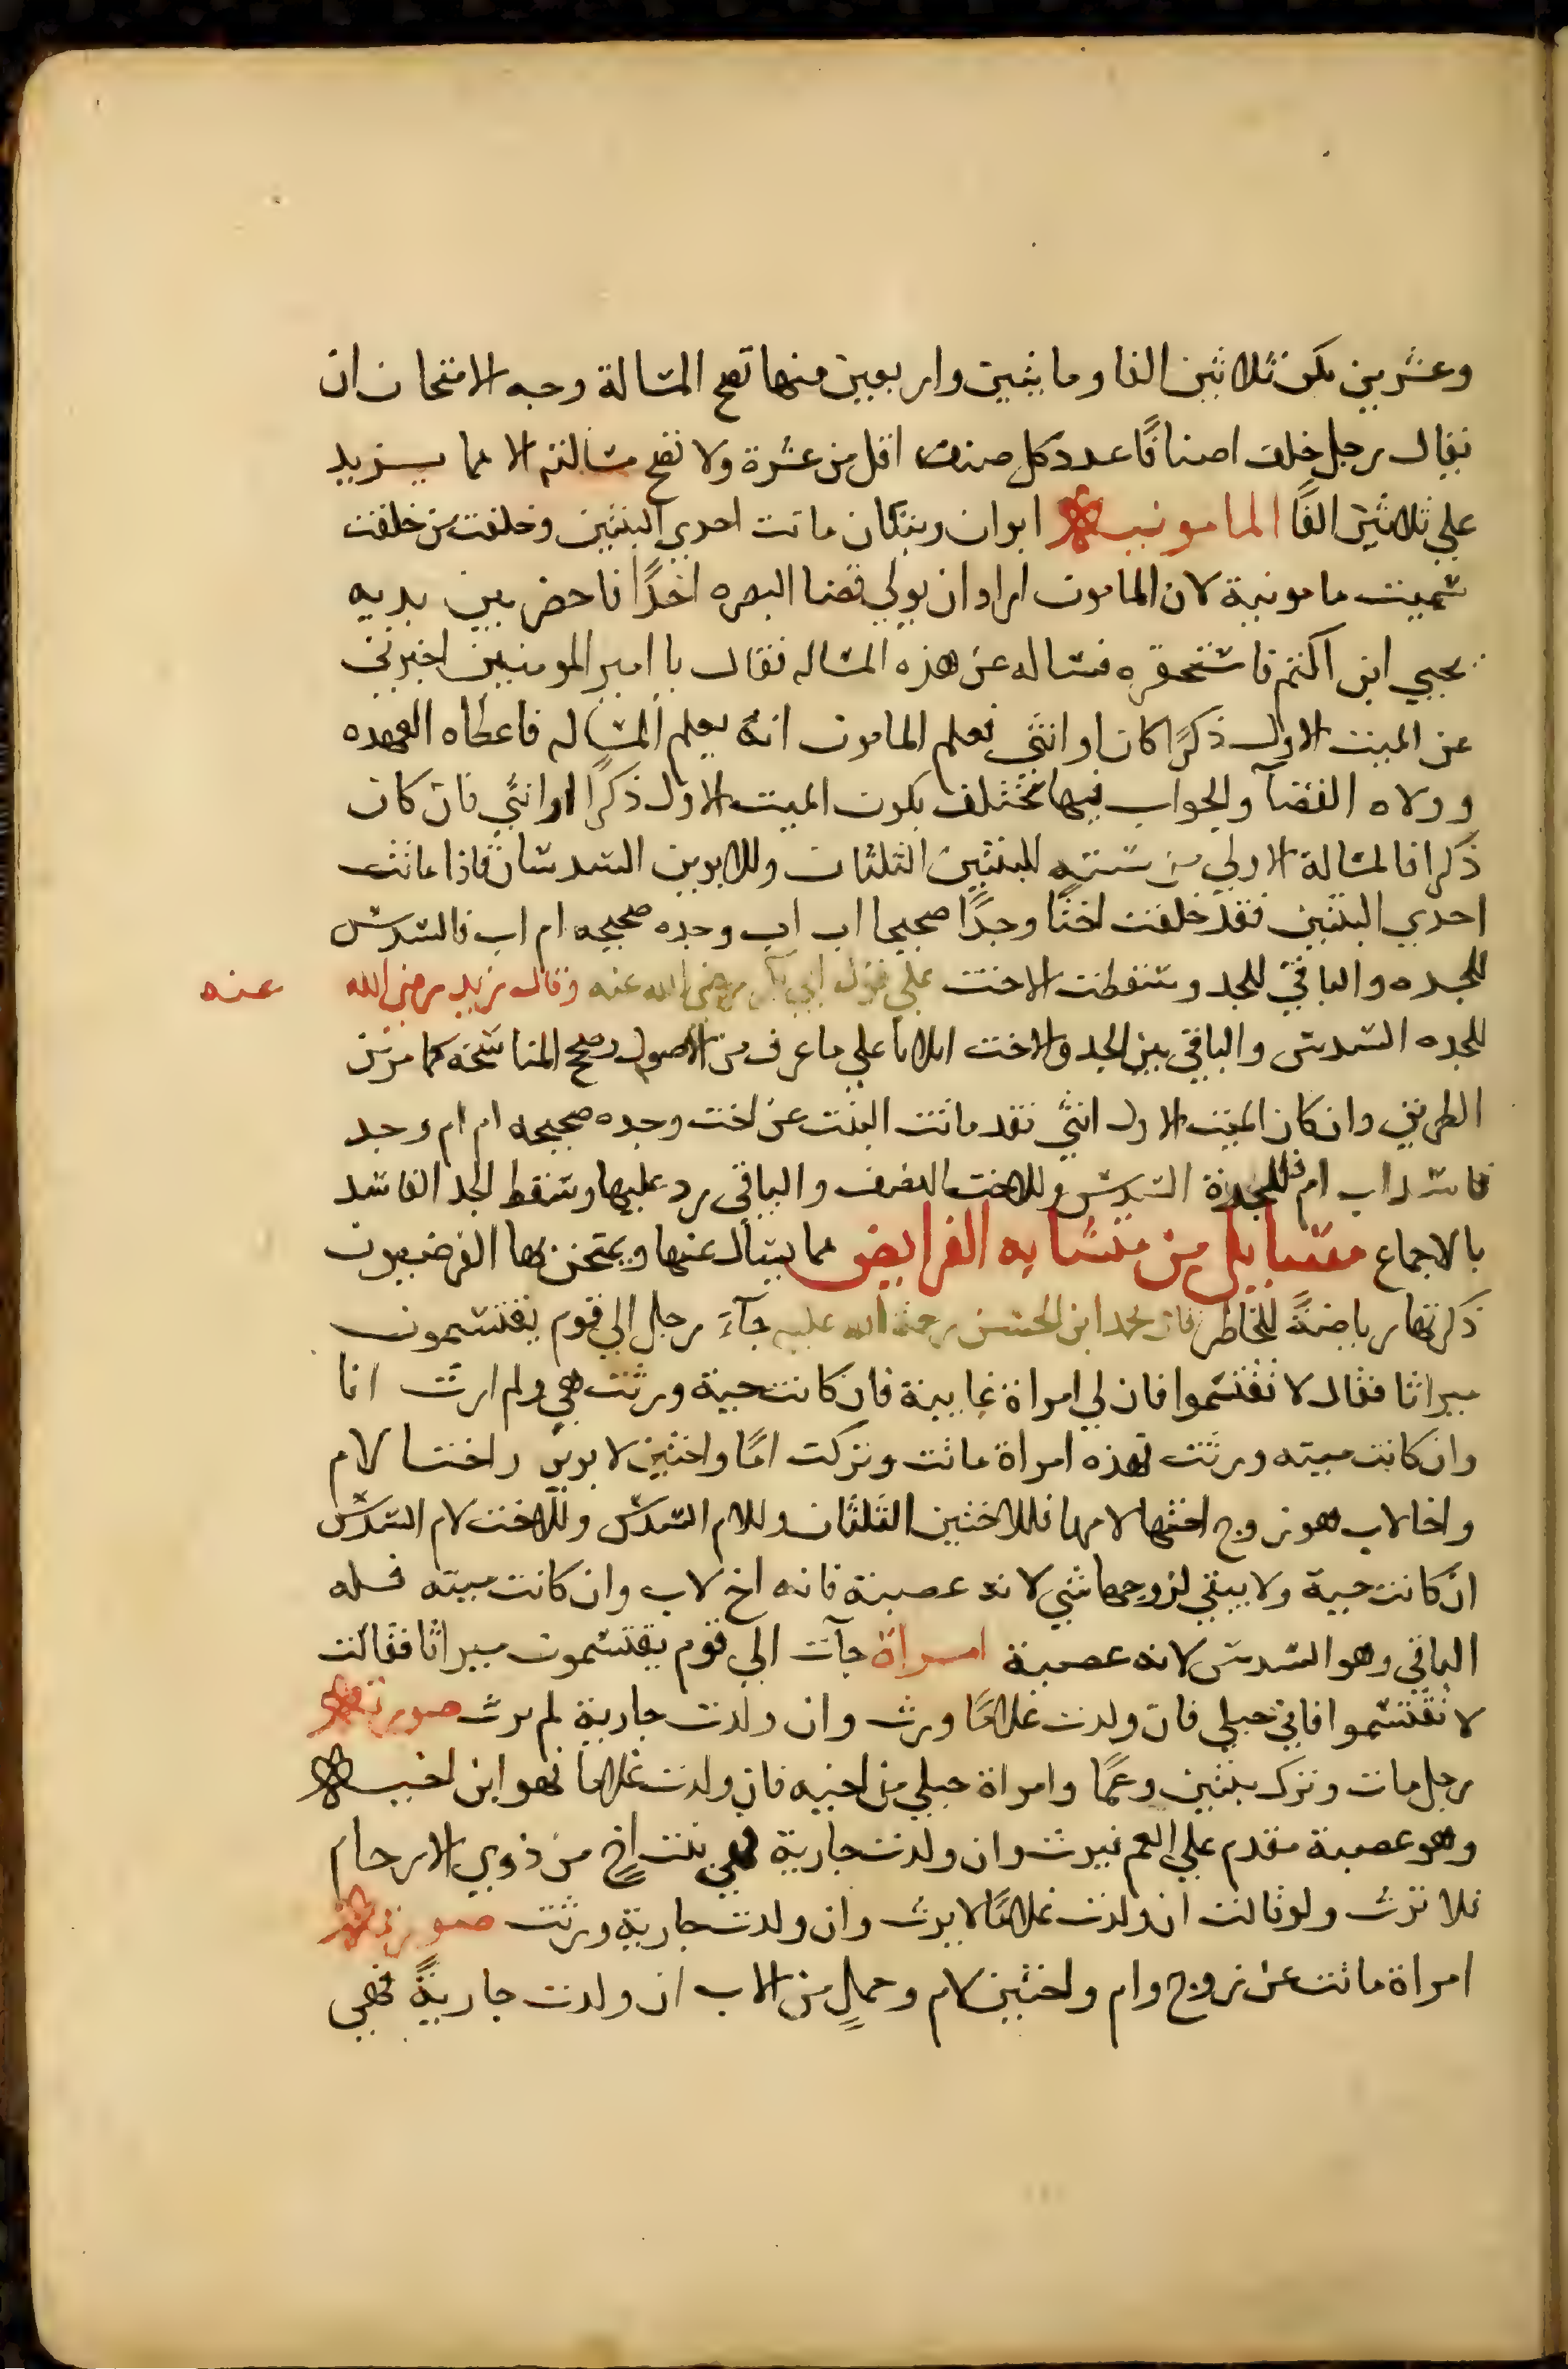 وعشرين يكن ثلاثين الفا ومايتين واربعين منها تصح المسالة وجه الامتحان ان
يقال رجل خلف اصنافًا عدد كل صنف اقل من عشرة ولا تصح مسالته الا مما يزيد
علي ثلاثين الفًا المامونيه ابوان وبنتان ماتت احدي البنتين وخلفت من خلفت
سميت مامونية لان المامون اراد ان يولي قضا البصره احدًا فاحضر بين يديه
يحيي ابن اكثم فاستحقره فساله عن هذه المساله فقال يا امير المومنين اخبرني
عن الميت الاول ذكرًا كان او انثي فعلم المامون انه يعلم المساله فاعطاه العهده
وولاه القضآ والجواب فيها يختلف بكون الميت الاول ذكرًا او انثي فان كان
ذكرا فالمسالة الاولي من ستته للبنتين الثلثان وللابوين السدسان فاذا ماتت
احدي البنتين فقد خلفت اختًا وجدًا صحيحا اب اب وجده صحيحه ام اب فالسدس
للجده والباقي للجد وسقطت الاخت علي قول ابي بكر رضي الله عنه وقال زيد رضي الله عنه
للجده السدس والباقي بين الجد والاخت اثلاثا علي ما عرف من الاصول وتصح المناسخه كما مر من
الطريق وان كان الميت الاول انثي فقد ماتت البنت عن اخت وجده صحيحه ام ام وجد
فاسد اب ام فللجدة السدس وللاخت النصف والباقي يرد عليهما وسقط الجد الفاسد
بالاجماع مسايل من متشابه الفرايض مما يسال عنها ويمتحن بها الفرضيون
ذكرتها رياضةً للخاطر قال محمد ابن الحسن رحمة الله عليه جآء رجل الي قوم يقتسمون
ميراثا فقال لا تقتسموا فان لي امراة غايبة فان كانت حية ورثت هي ولم ارث انا
وان كانت ميته ورثت فهذه امراة ماتت وتركت امًا واختين لابوين واختا لام
واخا لاب هو زوج اختها لامها فللاختين الثلثان وللام السدس وللاخت لام السدس
ان كانت حية ولا يبقي لزوجها شي لانه عصبة فانه اخ لاب وان كانت ميته فله
الباقي وهو السدس لانه عصبة امراة جآت الي قوم يقتسمون ميراثا فقالت
لا تقتسموا فاني حبلي فان ولدت غلامًا ورث وان ولدت جارية لم يرث صورتها
رجل مات وترك بنتين وعمًا وامراة حبلي من اخيه فان ولدت غلاما فهو ابن اخيه
وهو عصبة مقدم علي العم فيرث وان ولدت جارية فهي بنت اخٍ من ذوي الارحام
فلا ترث ولو قالت ان ولدت غلامًا لا يرث وان ولدت جارية ورثت صورتها
امراة ماتت عن زوج وام واختين لام وحملٍ من الاب ان ولدت جاريةً فهي